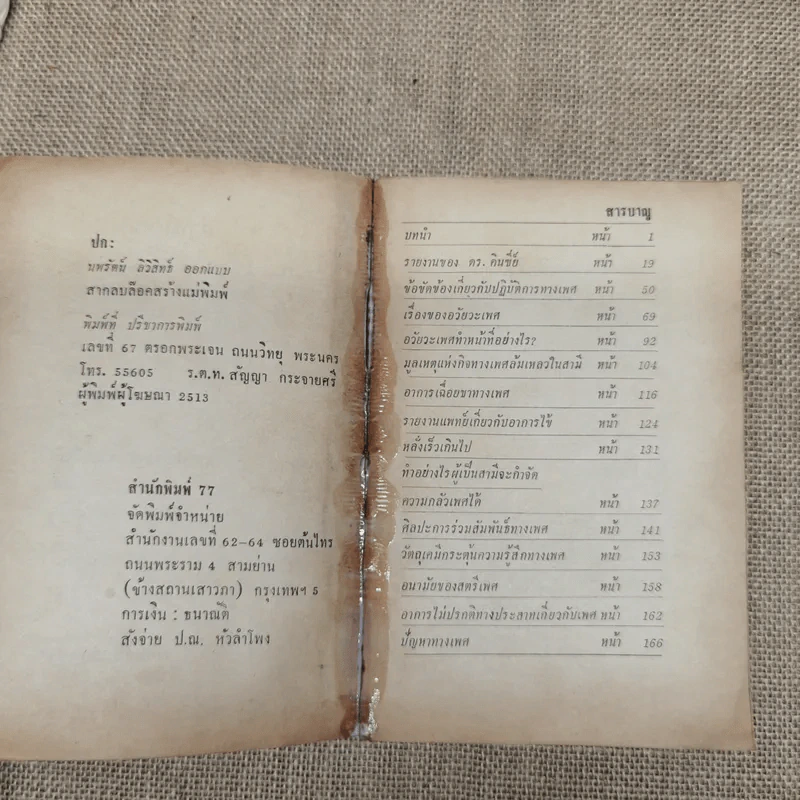 ปก:
นพรัตน์ ลิวิสิทธิ์ ออกแบบ
สากลบล๊อคสร้างแม่พิมพ์
พิมพ์ที่ ปรีชาการพิมพ์
เลขที่ 67 ตรอกพระเจน ถนนวิทยุ พระนคร
โทร. 55605 ร.ต.ท. สัญญา กระจายศรี
ผู้พิมพ์ผู้โฆษณา 2513
สำนักพิมพ์ 77
จัดพิมพ์จำหน่าย
สำนักงานเลขที่ 62-64 ซอยต้นไทร
ถนนพระราม 4 สามย่าน
(ข้างสถานเสาวภา) กรุงเทพฯ 5
การเงิน : ธนาณัติ
สั่งจ่าย ป.ณ. หัวลำโพง
สารบาญ
บทนำ หน้า 1
รายงานของ ดร. คินซี่ย์ หน้า 19
ข้อขัดข้องเกี่ยวกับปฏิบัติการทางเพศ หน้า 50
เรื่องของอวัยวะเพศ หน้า 69
อวัยวะเพศทำหน้าที่อย่างไร? หน้า 92
มูลเหตุแห่งกิจทางเพศล้มเหลวในสามี หน้า 104
อาการเฉื่อยชาทางเพศ หน้า 116
รายงานแพทย์เกี่ยวกับอาการไข้ หน้า 124
หลั่งเร็วเกินไป หน้า 131
ทำอย่างไรผู้เป็นสามีจะกำจัด
ความกลัวเพศได้ หน้า 137
ศิลปะการร่วมสัมพันธ์ทางเพศ หน้า 141
วัตถุเคมีกระตุ้นความรู้สึกทางเพศ หน้า 153
อนามัยของสตรีเพศ หน้า 158
อาการไม่ปรกติทางประสาทเกี่ยวกับเพศ หน้า 162
ปัญหาทางเพศ หน้า 166